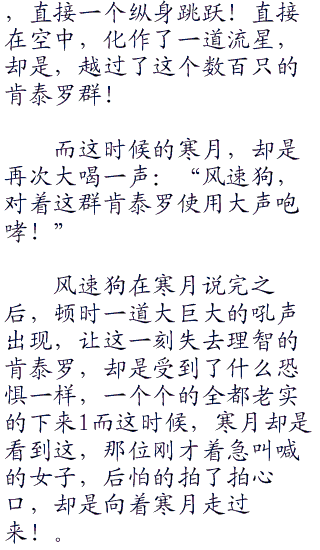 ，直接一个纵身跳跃！直接
在空中，化作了一道流星，
却是，越过了这个数百只的
肯泰罗群！
而这时候的寒月，却是
再次大喝一声：“风速狗，
对着这群肯泰罗使用大声咆
哮！”
风速狗在寒月说完之
后，顿时一道大巨大的吼声
出现，让这一刻失去理智的
肯泰罗，却是受到了什么恐
惧一样，一个个的全都老实
的下来1而这时候，寒月却是
看到这，那位刚才着急叫喊
的女子，后怕的拍了拍心
口，却是向着寒月走过
来！。